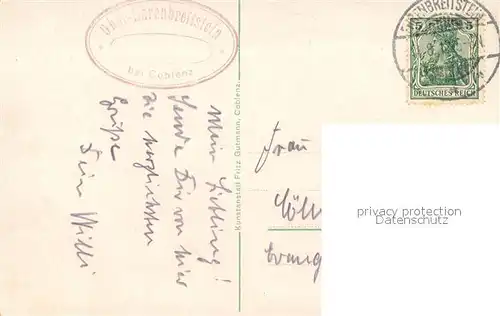 Ehrenbreitstein
bei Coblenz
Mein Liebling!
Sende Dir von hier
die herzlichsten
Grüße
Dein Willi
Kunstanstalt Fritz Gutmann, Coblenz.
NBREITSTEIN
5 5
DEUTSCHES REICH
Frau
Cöln
Evang
privacy protection
Datenschutz